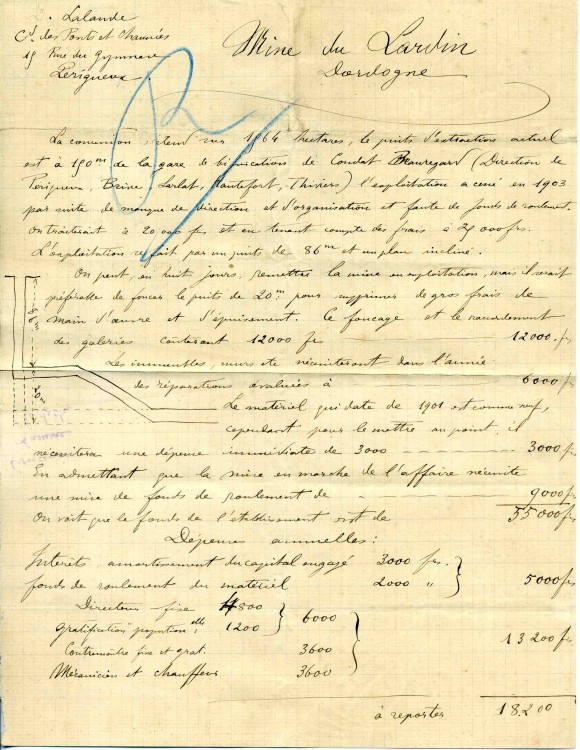 Lalande
Cr des Ponts et Chaussées
15 Rue du Gymnase
Périgueux
Mine du Lardin
Dordogne
La concession s'étend sur 1864 hectares, le puits d'extraction actuel
est à 150m de la gare de bifurcations de Condat Beauregard (Direction de
Périgueux, Brive, Sarlat, Hautefort, Thiviers) l'exploitation a cessé en 1903
par suite de manque de direction et d'organisation et faute de fonds de roulement.
On traiterait à 20 000 frs et en tenant compte des frais à 25 000 frs.
L'exploitation se fait par un puits de 86m et un plan incliné.
On peut, en huit jours, remettre la mine en exploitation, mais il serait
préférable de foncer le puits de 20m pour supprimer de gros frais de
main d'œuvre et d'épuisement. Ce fonçage et le raccordement
des galeries couterant 12000 frs 12000. frs
Les immeubles, murs etc nécessiteront dans l'année
des réparations évaluées à 6000 frs
Le matériel qui date de 1901 est comme neuf,
cependant pour le mettre au point, il
nécessitera une dépense immédiate de 3000 3000 frs
En admettant que la mise en marche de l'affaire nécessite
une mise de fonds de roulement de 9000 frs
On voit que le fonds de l'établissement est de 55000 frs
Dépenses annuelles :
Intérêts amortissement du capital engagé 3000 frs.
fonds de roulement du matériel 2000 " 5000 frs
Directeur - fixe 4800
gratification proportionelle 1200 6000
Contremaître fixe et grat. 3600 13200 fr
Mécanicien et chauffeur 3600
à reporter 18.200
86m
20m